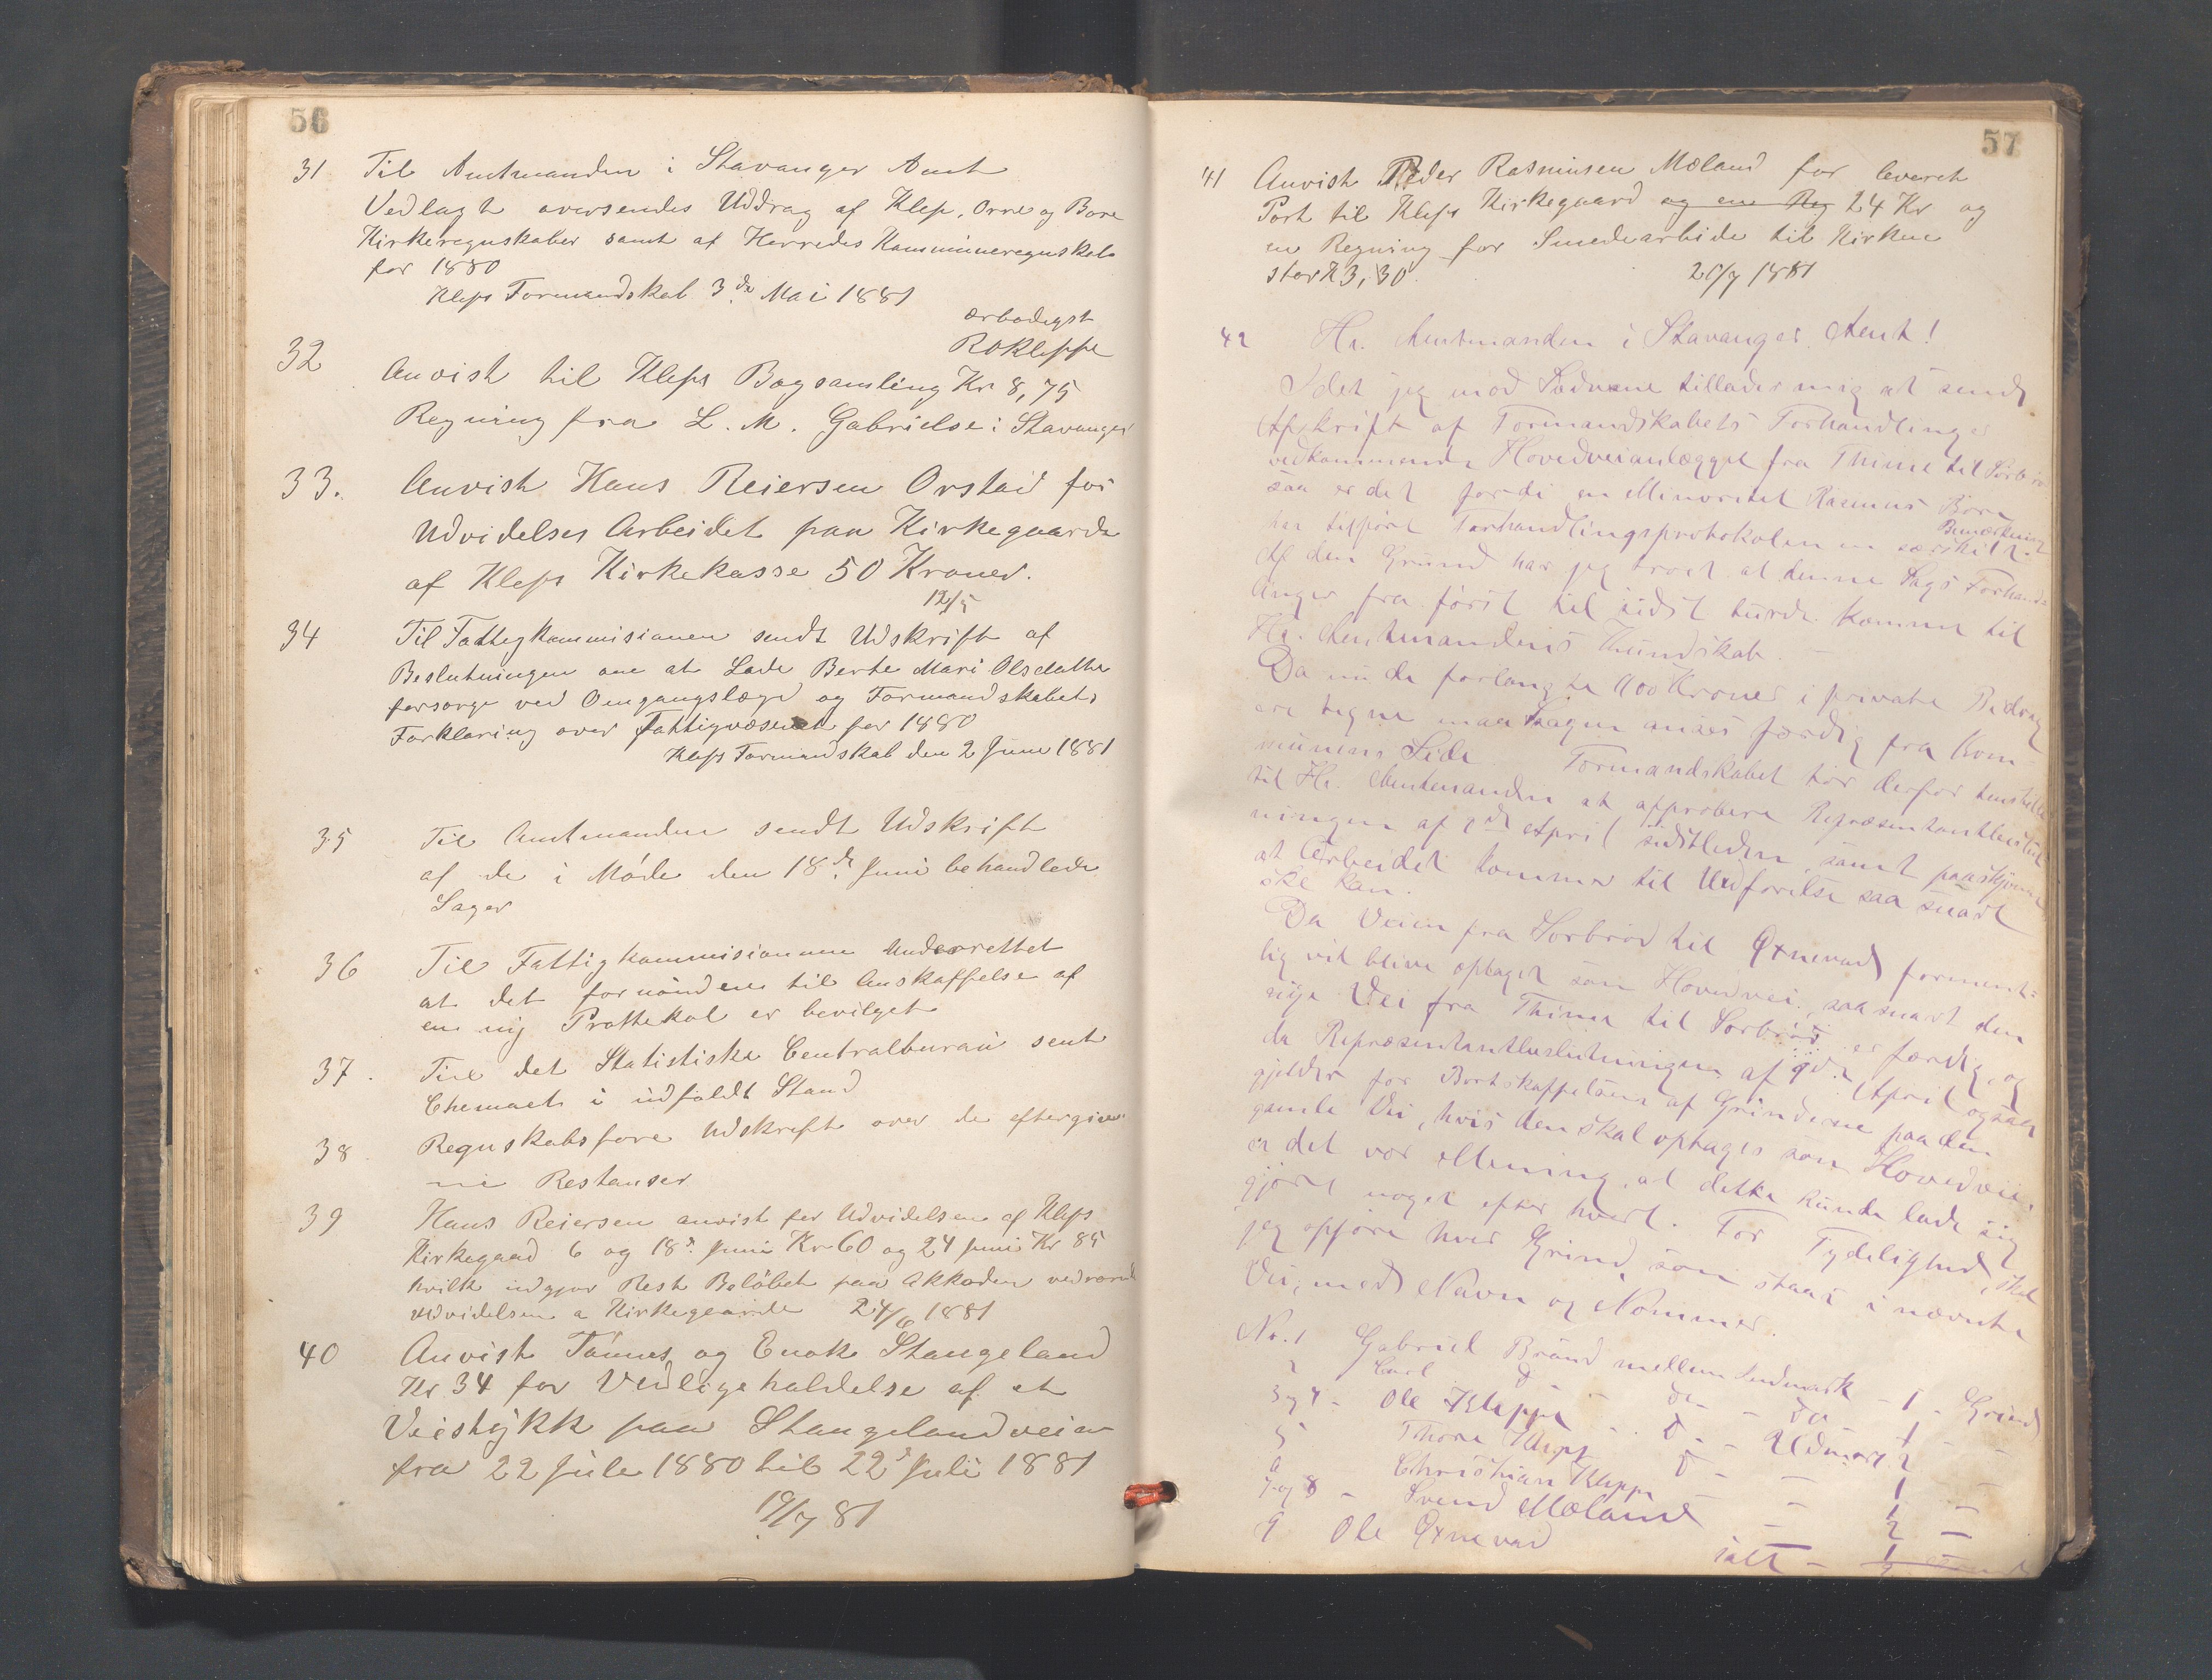 56
31 Til Amtmanden i Stavanger Amt
Vedlagt oversendes Uddrag af Klep, Orre og Bore
Kirkeregnskaber samt af Herredes Kommuneregnskab
for 1880
Kleps Formandskab 3de Mai 1881
ærbødigst
ROKleppe
32 Anvist til Kleps Bogsamling Kr 8,75
Regning fra L. M. Gabrielse i Stavanger
33. Anvist Hans Reiersen Orstad for
Udvidelses Arbeidet paa Kirkegaarde
af Kleps Kirkekasse 50 Kroner.
12/5
34 Til Fattigkommisionen sendt Udskrift af
Beslutningen om at Lade Berte Mari Olsdatter
forsørge ved Omgangslægd og Formandskabets
Forklaring over Fattigvæsenet for 1880
Kleps Formandskab den 2 Juni 1881
35 Til Amtmanden sendt Udskrift
af de i Møde den 18de Juni behandlede
Sager
36 Til Fattigkommisionen Underrettet
at det fornødne til Anskaffelse af
en ny Prottekol er bevilget
37. Til det Statistiske Centralbureau sent
Chemaet i udfyldt Stand
38. Regnskabsføre Udskrift over de eftergivne
Restanser
39 Hans Reiersen anvist for Udvidelsen af Kleps
Kirkegaad 6 og 18de Juni Kr 60 og 24 Juni Kr 85
hvilk udgjør Rest Beløbet paa Akkorden vedrørende
udvidelsen a Kirkegaarde 24/6 1881
40 Anvist Tønnes og Enok Stangeland
Kr 34 for Vedligeholdelse af et
Veistykk paa Stangelandveien
fra 22 Jule 1880 til 22de Juli 1881
19/7 81
57
41 Anvist Peder Rasmusen Mæland for leveret
Port til Kleps Kirkegaard og en Reg 24 Kr og
en Regning for Smedearbide til Kirken
stor K 3,30. 21/7 1881
42 Hr. Amtmanden i Stavanger Amt!
Idet jeg mod Sædvane tillader mig at sende
Afskrift af Formandskabets Forhandlinger
vedkommende Hovedveianlægget fra Thime til Sørbrø
saa er det fordi en Minoritet Rasmus Bore
har tilført Forhandlingsprotokolen en særskilt Bemærkning
Af den Grund har jeg troet at denne Sags Forhand-
linger fra først til sidst turde komme til
Hr. Amtmandens Kundskab.
Da nu de forlangte 1100 Kroner i private Bidrag
ere tegne maa Sagen ansees færdig fra Kom-
munens Side. Formandskabet tør derfor henstille
til Hr. Amtmanden at approbere Repræsentantbeslut
ningen af 9de April sidstleden samt paaskynde
at Arbeidet kommer til Udførelse saa snart
ske kan.
Da Veien fra Sørbrød til Øxnevad forment-
lig vil blive optaget som Hovedvei, saasnart den
nye Vei fra Thime til Sørbrød er færdig, og
da Repræsentantbeslutningen af 9de April ogsaa
gjelder for Bortskaffelsen af Grinderne paa den
gamle Vei, hvis den skal optages som Hovedvei,
er det vor Mening, at dette kunde lade sig
gjøre noget efter hvert. For Tydelighed, skal
jeg opføre hver Grind, som staar i nævnte
Vei, med Navn og Nommer.
No. 1 Gabriel Brønd mellem Indmark - 1 - Grind
2 Carl do - do - do - 1 -
3 og 4 - Ole Kleppe - do - Udmark 2
5 Thore Klepp - do - 1 -
6 Christian Kleppe - 1 -
7 og 8 - Svend Mæland - 2 -
9 Ole Øxnevad 1
ialt -